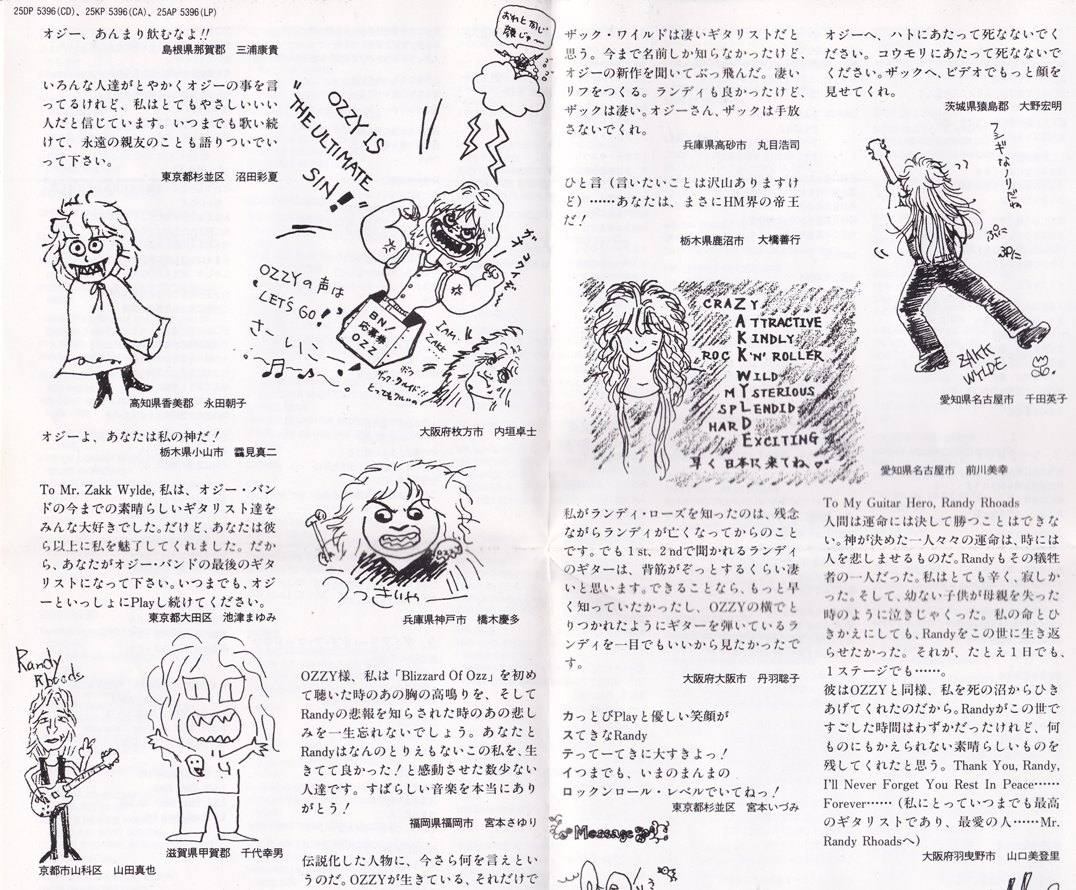 25DP 5396(CD)、25KP 5396(CA)、25AP 5396(LP)
オジー、あんまり飲むなよ!!
島根県那賀郡 三浦康貴
いろんな人達がとやかくオジーの事を言
ってるけれど、私はとてもやさしいいい
人だと信じています。いつまでも歌い続
けて、永遠の親友のことも語りついでい
って下さい。
東京都杉並区 沼田彩夏
高知県香美郡 永田朝子
オジーよ、あなたは私の神だ!
栃木県小山市 靍見真二
To Mr. Zakk Wylde, 私は、オジー・バン
ドの今までの素晴らしいギタリスト達を
みんな大好きでした。だけど、あなたは彼
ら以上に私を魅了してくれました。だか
ら、あなたがオジー・バンドの最後のギタ
リストになって下さい。いつまでも、オジ
ーといっしょにPlayし続けてください。
東京都大田区 池津まゆみ
Randy
Rhoads
京都市山科区 山田真也
滋賀県甲賀郡 千代幸男
おれと同じ
顔じゃ〜
OZZY IS
"THE ULTIMATE
SIN!"
OZZYの声は
LET'S GO!
さー
いこー
BN/
応募券
OZZ
I am
ZAKK
ボク
ザック・ワイルド!!
とってもクルいの
大阪府枚方市 内垣卓士
うっきいや
兵庫県神戸市 橋木慶多
OZZY様、私は「Blizzard Of Ozz」を初め
て聴いた時のあの胸の高鳴りを、そして
Randyの悲報を知らされた時のあの悲し
みを一生忘れないでしょう。あなたと
Randyはなんのとりえもないこの私を、生
きてて良かった!と感動させた数少ない
人達です。すばらしい音楽を本当にあり
がとう!
福岡県福岡市 宮本さゆり
伝説化した人物に、今さら何を言えとい
うのだ。OZZYが生きている、それだけで
ザック・ワイルドは凄いギタリストだと
思う。今まで名前しか知らなかったけど、
オジーの新作を聞いてぶっ飛んだ。凄い
リフをつくる。ランディも良かったけど、
ザックは凄い。オジーさん、ザックは手放
さないでくれ。
兵庫県高砂市 丸目浩司
ひと言(言いたいことは沢山ありますけ
ど)……あなたは、まさにHM界の帝王
だ!
栃木県鹿沼市 大橋善行
CRAZY
ATTRACTIVE
KINDLY
ROCK 'N' ROLLER
WILD
MYSTERIOUS
SPLENDID
HARD
EXCITING
早く日本に来てね
愛知県名古屋市 前川美幸
私がランディ・ローズを知ったのは、残念
ながらランディが亡くなってからのこと
です。でも1st、2ndで聞かれるランディ
のギターは、背筋がぞっとするくらい凄
いと思います。できることなら、もっと早
く知っていたかったし、OZZYの横でと
りつかれたようにギターを弾いているラ
ンディを一目でもいいから見たかったで
す。
大阪府大阪市 丹羽聡子
カっとびPlayと優しい笑顔が
スてきなRandy
テってーてきに大すきよっ!
イつまでも、いまのまんまの
ロックンロール・レベルでいてねっ!
東京都杉並区 宮本いづみ
Message
オジーへ、ハトにあたって死なないでく
ださい。コウモリにあたって死なないで
くださいザックへ、ビデオでもっと顔を
見せてくれ。
茨城県猿島郡 大野宏明
フシギなノリだよね
ぷに
ぷに
ZAKK
WYLDE
愛知県名古屋市 千田英子
To My Guitar Hero, Randy Rhoads
人間は運命には決して勝つことはできな
い。神が決めた一人々々の運命は、時には
人を悲しませるものだ。Randyもその犠牲
者の一人だった。私はとても辛く、寂しか
った。そして、幼ない子供が母親を失った
時のように泣きじゃくった。私の命とひ
きかえにしても、Randyをこの世に生き返
らせたかった。それが、たとえ1日でも、
1ステージでも……。
彼はOZZYと同様、私を死の沼からひき
あげてくれたのだから。Randyがこの世で
すごした時間はわずかだったけれど、何
ものにもかえられない素晴らしいものを
残してくれたと思う。Thank You, Randy,
I'll Never Forget You Rest In Peace……
Forever……(私にとっていつまでも最高
のギタリストであり、最愛の人……Mr.
Randy Rhoadsへ)
大阪府羽曳野市 山口美登里